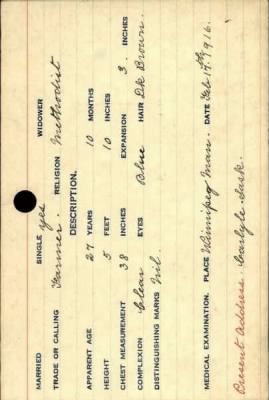 MARRIED SINGLE yes WIDOWER
TRADE OR CALLING Farmer. RELIGION Methodist
DESCRIPTION.
APPARENT AGE 27 YEARS 10 MONTHS
HEIGHT 5 FEET 10 INCHES
CHEST MEASUREMENT 38 INCHES EXPANSION 3 INCHES
COMPLEXION Clear EYES Blue HAIR Dk Brown.
DISTINGUISHING MARKS Nil.
MEDICAL EXAMINATION. PLACE Winnipeg Man. DATE Feb 17th 1916.
Present Address. Carlyle. Sask.